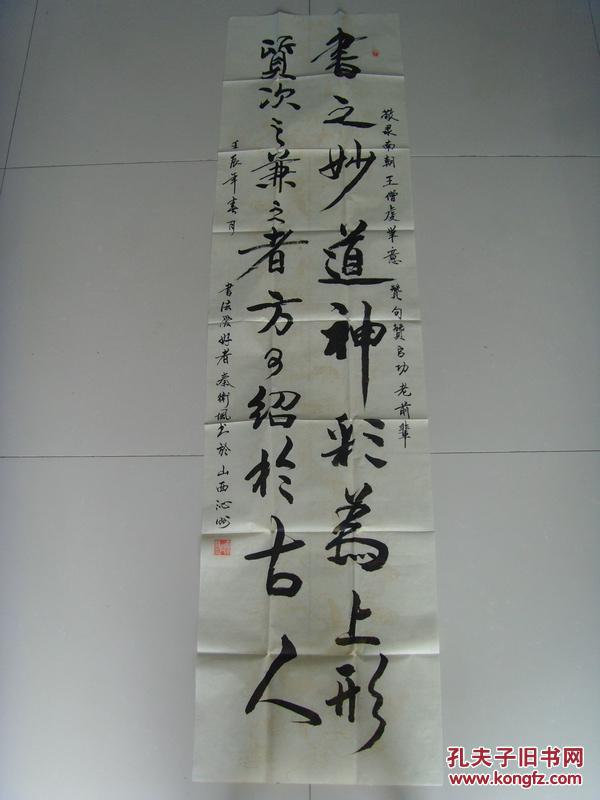 书之妙道神彩为上形
質次之兼之者方可紹於古人
敬录南朝王僧虔笔意 赞句赞启功老前辈
壬辰年春月
書法愛好者秦衛風书於山西沁州
孔夫子旧书网
www.kongfz.com